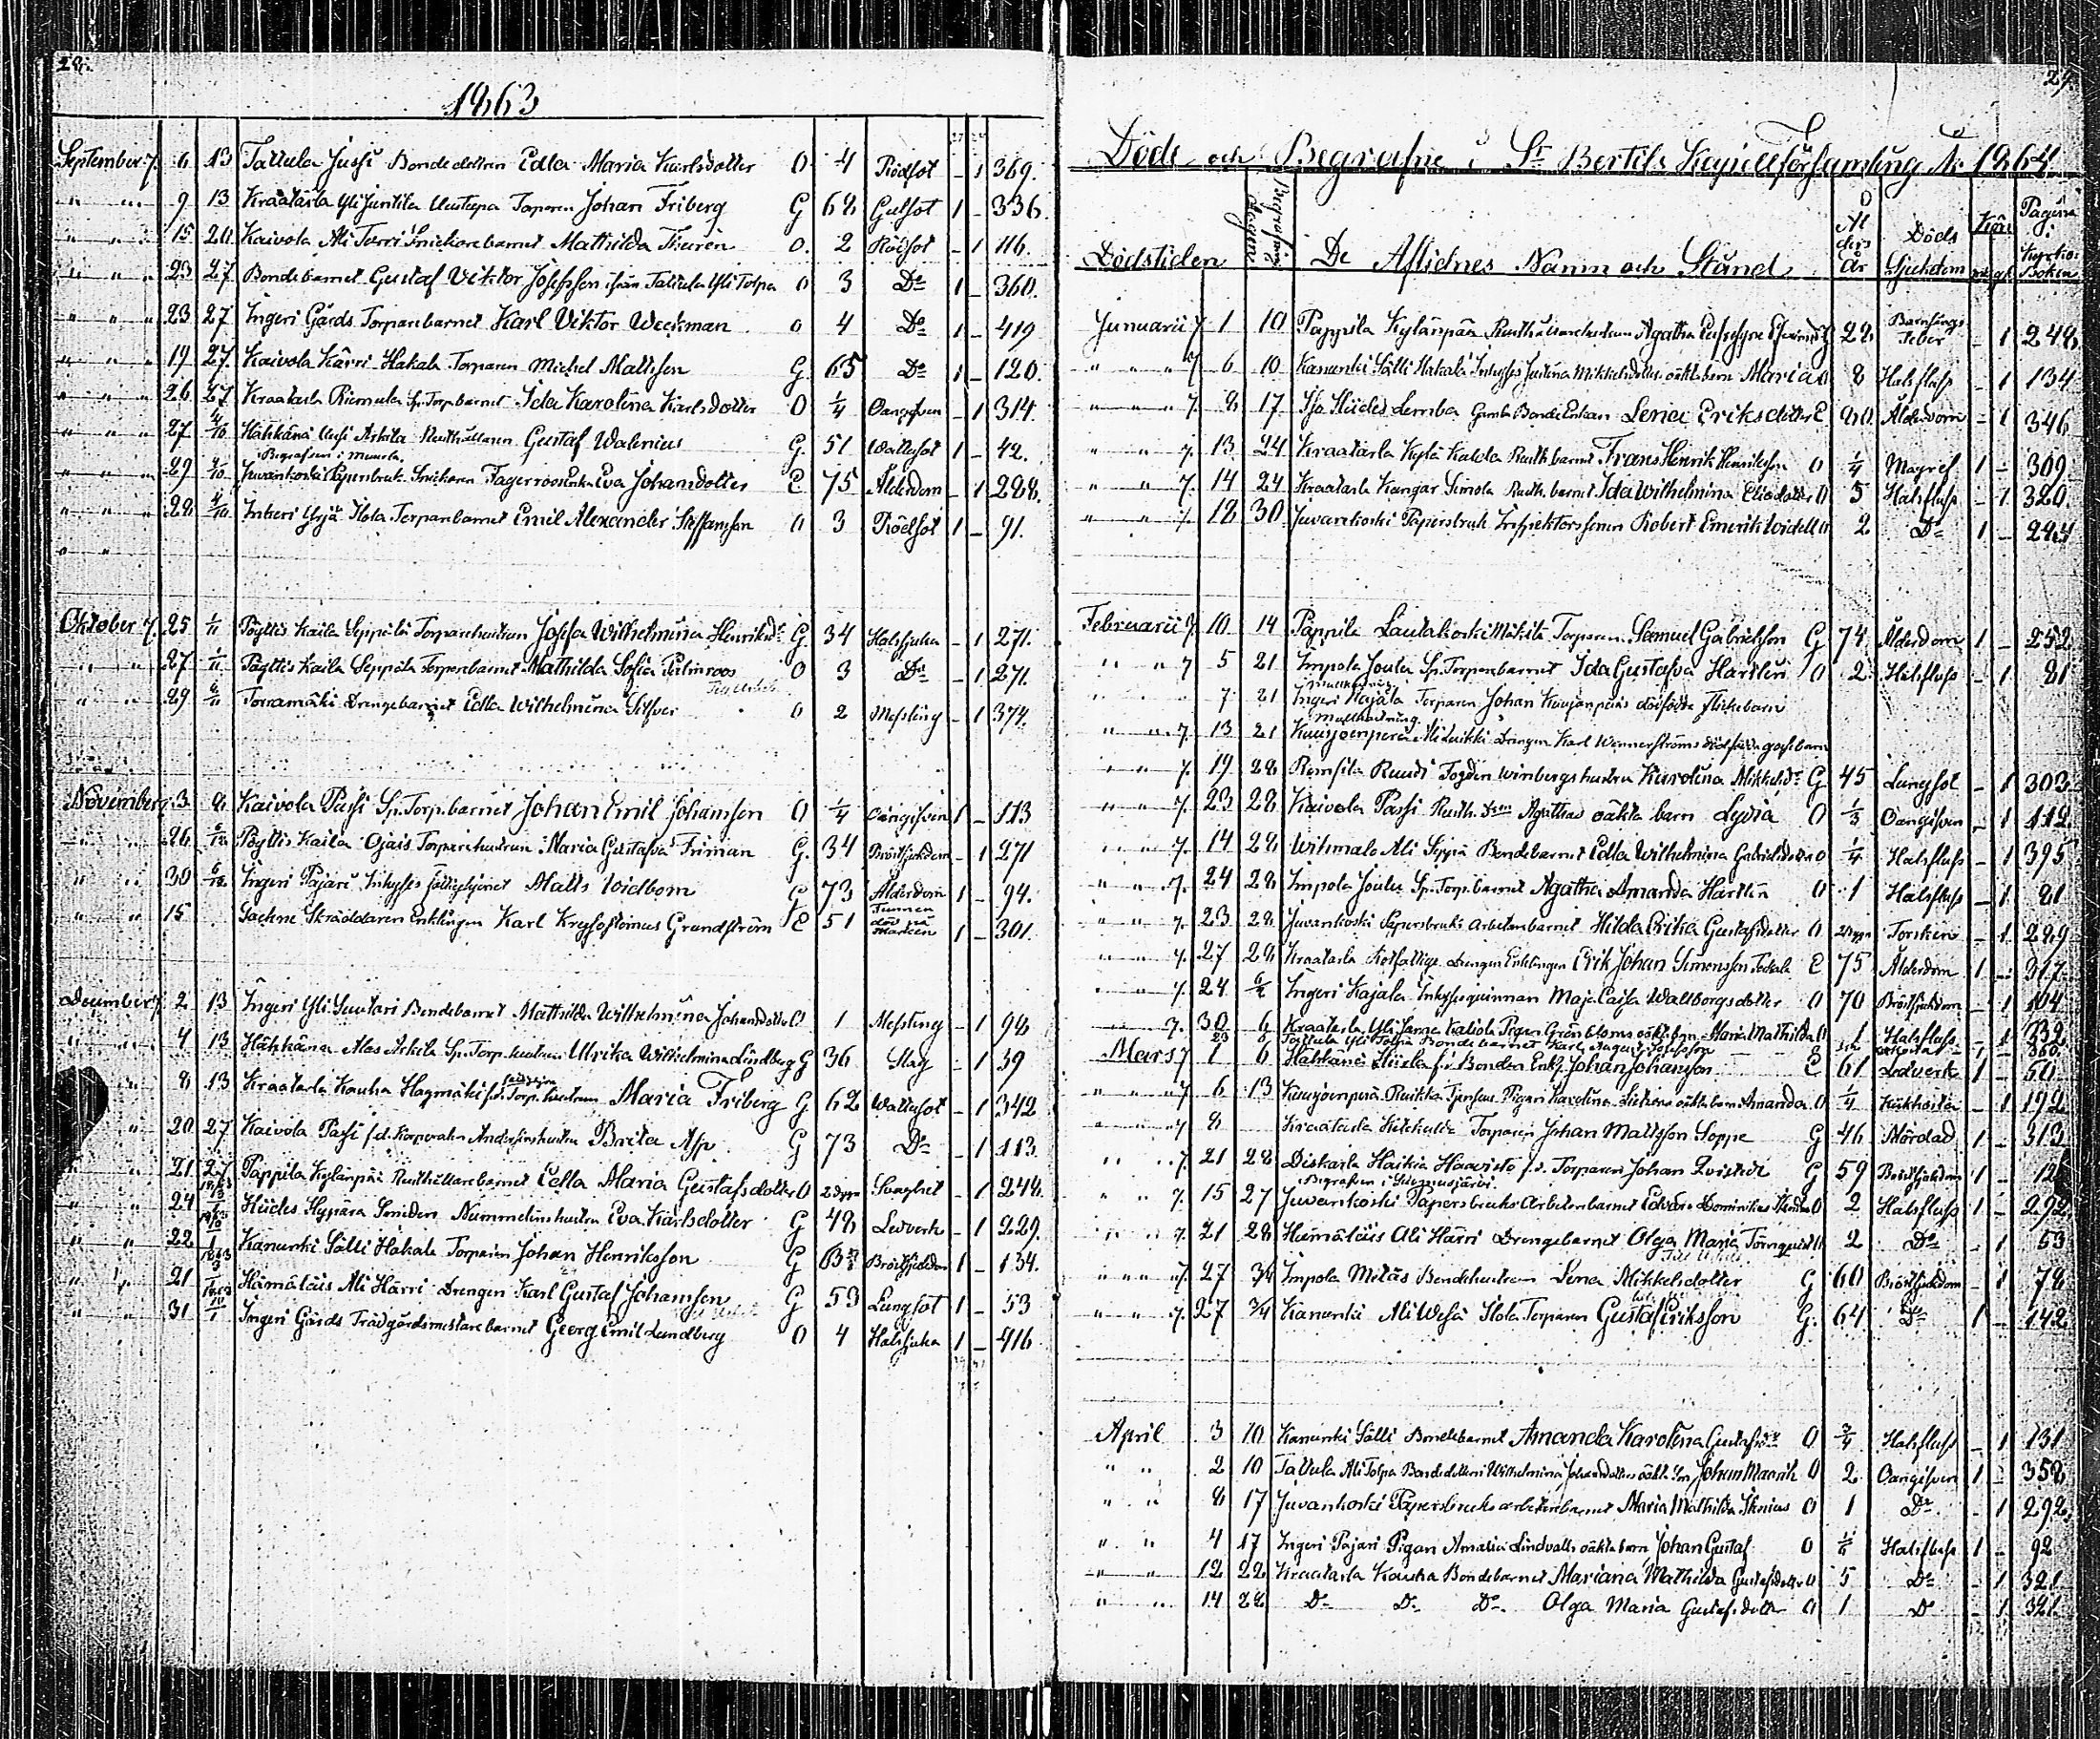 28.
1863
September 7. 6 13 Tattula Jussi Bondedottren Edla Maria Karlsdotter O 4 Rödsot - 1 369.
" " 9 13 Kraatarla Yli Junttila Uusitupa Torparen Johan Friberg G 68 Gulsot 1 - 336.
" " " 15 20 Kaivola Ali Torri Snickarebarnet Mathilda Thurén O. 2 Rödsot - 1 116.
" " " 23 27 Bondebarnet Gustaf Viktor Josefsson ifrån Tattula Yli Tolpa O 3 Do 1 - 360.
" " " 23 27 Ingeri Gårds Torparebarnet Karl Viktor Weckman O 4 Do 1 - 419
" " " 19 27. Kaivola Kärri Hakala Torparen Michel Mattsson G. 65 Do 1 - 120.
" " " 26 27 Kraatarla Riemula Sp. Torp. barnet Ida Karolina Karlsdotter O 1/4 Oangifven - 1 314.
" " " 27 4/10 Hähkänä Uusi Askila Rusthållaren Gustaf Walenius G. 51 Wattusot 1 - 42.
Begrafven i Muurla.
" " " 29 4/10 Juvankoski Papersbruk Snickaren Fagerroos Enka Eva Johansdotter E 75 Ålderdom - 1 288.
" " " 28 4/10 Inkeri Yrjä Ilola Torparebarnet Emil Alexander Steffansson O 3 Rödsot 1 - 91.
" "
Oktober 7. 25 1/11 Pöytiö Kaila Seppälä Torparehustrun Josefa Wilhelmina Henriksdr G. 34 Halssjuka - 1 271.
" " 27 1/11 Pöytiö Kaila Seppälä Torparebarnet Mathilda Sofia Palmroos O 3 Do - 1 271.
" " 29 8/11 Torramäki Drengebarnet Edla Wilhelmina Silfver O 2 Messling - 1 374.
November 3 8 Kaivola Passi Sp. Torp. barnet Johan Emil Johansson O 1/4 Oangifven 1 - 113
" " 26 6/12 Pöytiö Kaila Ojais Torparehustrun Maria Gustafva Friman G. 34 Bröstsjukdom - 1 271
" " 30 6/12 Ingeri Pajari Inhyses fattighjonet Matts Widbom G 73 Ålderdom 1 - 94.
" " 15 Sockne Skräddaren Enklingen Karl Krysostomus Grundström E 51 Funnen död på marken 1 - 301.
December 7. 2 13 Ingeri Yli Suutari Bondebarnet Mathilda Wilhelmina Johansdotter O 1 Messling - 1 98
" " 4 13 Hähkänä Alas Askila Sp. Torp. hustrun Ulrika Wilhelmina Lindberg G 36 Slag - 1 39
" 8 13 Kraatarla Kauha Hagmäki f.d. Torp. hustrun Maria Friberg G 62 Wattusot - 1 342
" 20 27 Kaivola Passi f.d. Korporalen Anders hustru Brita Asp G 73 Do - 1 113.
" " 21 27 Pappila Kylänpää Rusthållarebarnet Edla Maria Gustafsdotter O 2 dygn Svaghet - 1 248.
" " 24 Hiides Hypärä Smeden Nummelins hustru Eva Karlsdotter G 48 Ledverk - 1 229.
" " 22 Kanunki Sälli Hakala Torparen Johan Henriksson G 63 Bröstsjukdom 1 - 134.
" " 21 Hämäläis Ali Härri Drengen Karl Gustaf Johansson G 53 Lungsot 1 - 53
" " 31 Ingeri Gårds Trädgårdsmästarebarnet Georg Emil Lundberg O 4 Halssjuka 1 - 416
29.
Döde och Begrafne i St Bertils Kapellförsamling År 1864
Dödstiden Begrafnings dagen De Aflidnes Namn och Stånd Ålders År Döds Sjukdom Kön m. q. Pagina i Kyrkoboken
Januarii 7 1 10 Pappila Kylänpää Rusthållarehustrun Agatha G 28 Barnsängs feber - 1 248.
" " " 7 6 10 Kanunki Sälli Hakala Inhyses Justina Mikkelsdotters oäkta barn Maria O 8 Halsfluss - 1 134
" " " 7. 8 17 Iso Hiides Lemba Gamla Bonde Enkan Lena Eriksdotter E 80 Ålderdom - 1 346
" " 7. 13 24 Kraatarla Kylä Kakola Rusth. barnet Frans Henrik Henriksson O 1/4 Magref 1 - 309
" " 7. 14 24 Kraatarla Kangar Simola Rusth. barnet Ida Wilhelmina Eliedotter O 5 Halsfluss - 1 320.
" " 7. 18 30 Juvankoski Papersbruk Inspektors sonen Robert Emerik Widell O 2 Do 1 - 294
Februarii 7 10 14 Pappila Lautakoski Mäkilä Torparen Samuel Gabrielsson G 74 Ålderdom 1 - 252
" " 7 5 21 Impola Joulu Sp. Torparebarnet Ida Gustafva Hartlin O 2 Halsfluss - 1 81
7 21 Ingeri Kajala Torparen Johan Kuusjonpääs dödfödda flickebarn
" " 7. 13 21 Kuusjoenperä Ali Luikki Drengen Karl Wennerströms dödfödda gossebarn
" " 7. 19 28 Romsila Ruudi Fogden Winbergs hustru Karolina Mikkelsdr G 45 Lungsot - 1 303
" " 7. 23 28 Kaivola Passi Rusth. Dren Agathas oäkta barn Lydia O 1/3 Oangifven - 1 112.
" " 7. 14 28 Wihmalo Ali Seppä Bondebarnet Edla Wilhelmina Gabrielsdotter O 1/4 Halsfluss - 1 395
" " 7. 24 28 Impola Joulu Sp. Torp. barnet Agatha Amanda Hartlin O 1 Halsfluss - 1 81
" " 7. 23 28 Juvankoski Papersbruks Arbetarebarnet Hilda Erika Gustafsdotter O Torsken - 1 289
" " 7. 27 28 Kraatarla Rotfattige Drengen Enklingen Erik Johan Simonsson Tockala E 75 Ålderdom 1 - 317.
" 7. 24 Ingeri Kajala Inhysesqvinnan Maja Caisa Wallborgsdotter O 70 Bröstsjukdom - 1 104
7. 30 6 Kraatarla Yli Jange Kaliola Pigan Grönbloms oäkta barn Maria Mathilda O 1 Halsfluss - 1 332
Tattula Yli Tolpa Bondebarnet Karl August Josefsson kikhosta 1 - 360.
Mars 7 1 6 Hähkänä Hiisla f.d. Bonden Enkl. Johan Johansson E 61 Ledverk 1 - 50
" " 7 6 13 Kuusjoenperä Ruikka Pigan Karolina oäkta barn Amanda O 1/4 Kikhosta - 1 192
" " 7 8 Kraatarla Kiikkula Torparen Johan Mattsson Loppe G 46 Mördad 1 - 313
" " 7. 21 28 Diskarla Haikia Haavisto f.d. Torparen Johan Qvist G 59 Bröstsjukdom 1 - 12
" " 7. 15 27 Juvankoski Papersbruks Arbetarebarnet Edvard Dominikus O 2 Halsfluss 1 - 292
" " 7. 21 28 Hämäläis Ali Härri Drengebarnet Olga Maria Törnqvist O 2 Do - 1 53
" " " 7. 27 3/4 Impola Metäs Bondehustrun Lena Mikkelsdotter G 60 Bröstsjukdom - 1 78
" " " 7. 27 3/4 Kanunki Ali Wesä Ilola Torparen Gustaf Eriksson G. 64 Do 1 - 142
April 3 10 Kanunki Sälli Bondebarnet Amanda Karolina Gustafsdr O 3/4 Halsfluss - 1 131
" " 2 10 Tattula Ali Tolpa Bondedottren Wilhelmina Johansdotters oäkta son Johan Maurits O 2 Oangifven 1 - 358
" " 8 17 Juvankoski Papersbruks arbetarebarnet Maria Mathilda Skonius O 1 Do - 1 292.
" " 4 17 Ingeri Pajari Pigan Amalia Lindvalls oäkta barn Johan Gustaf O Halsfluss 1 - 92
" " 12 22 Kraatarla Kauha Bondebarnet Mariana Mathilda Gustafsdotter O 5 Do - 1 321
" " 14 22 Do Do Do Olga Maria Gustafsdotter O 1 Do - 1 321.